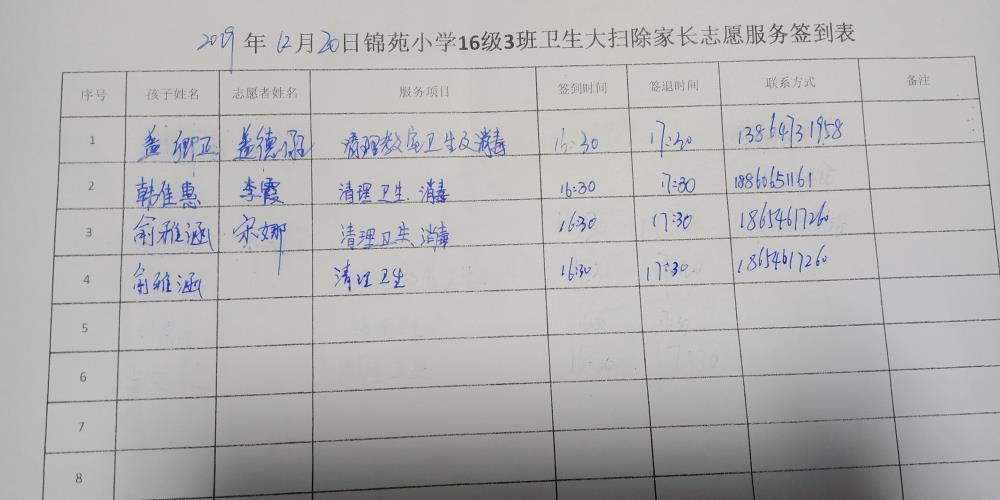 2019年12月20日锦苑小学16级3班卫生大扫除家长志愿服务签到表
序号 孩子姓名 志愿者姓名 服务项目 签到时间 签退时间 联系方式 备注
1 盖卿正 盖德强 清理教室卫生及消毒 16:30 17:30 13864731958
2 韩佳惠 李霞 清理卫生、消毒 16:30 17:30 18860651161
3 俞雅涵 宋娜 清理卫生、消毒 16:30 17:30 18654617260
4 俞雅涵 清理卫生 16:30 17:30 18654617260
5
6
7
8